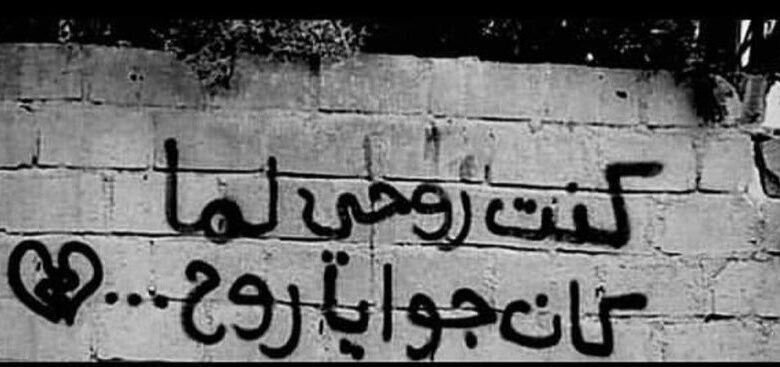 كنت روحي لما
كان جوايا روح...